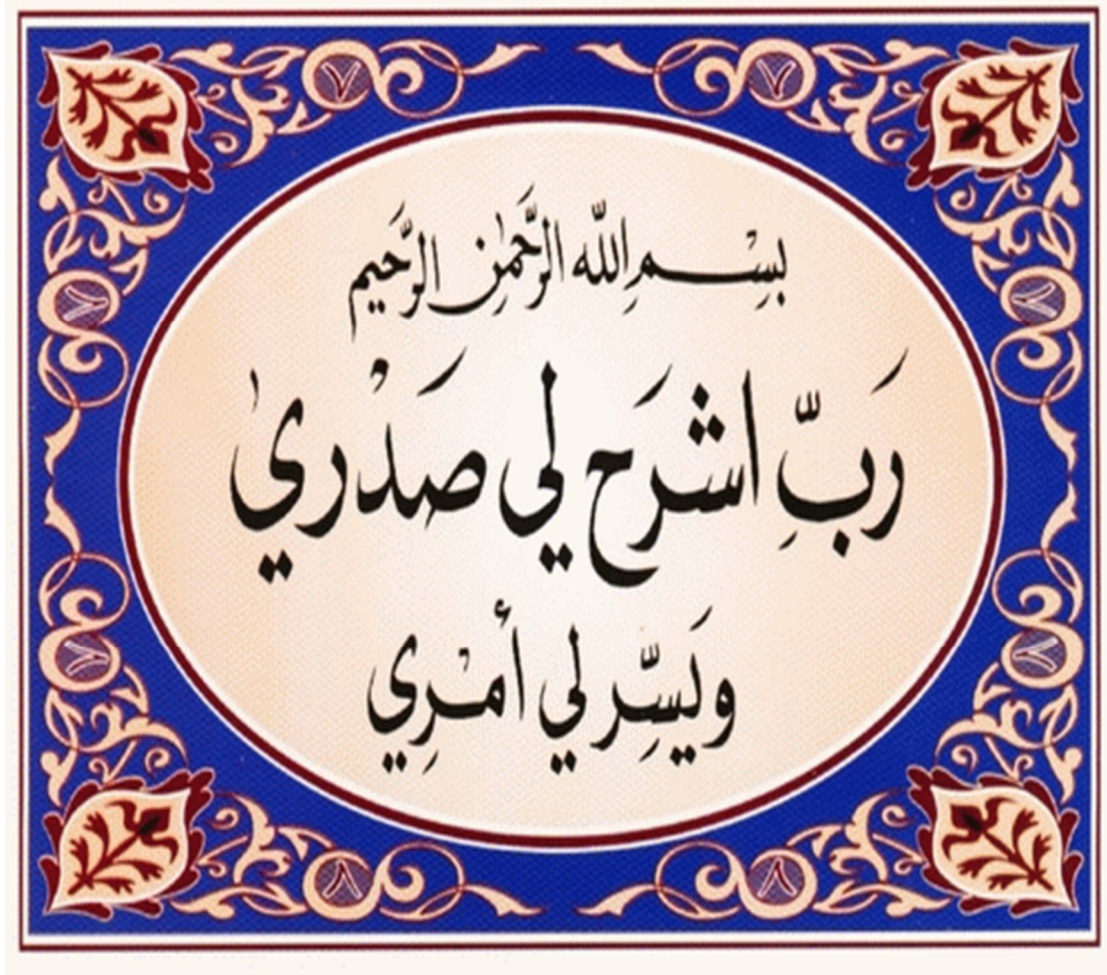 بِسْمِ اللّٰهِ الرَّحْمٰنِ الرَّحِيمِ
رَبِّ اشْرَح لِي صَدْرِي
وَيَسِّر لِي أَمْرِي